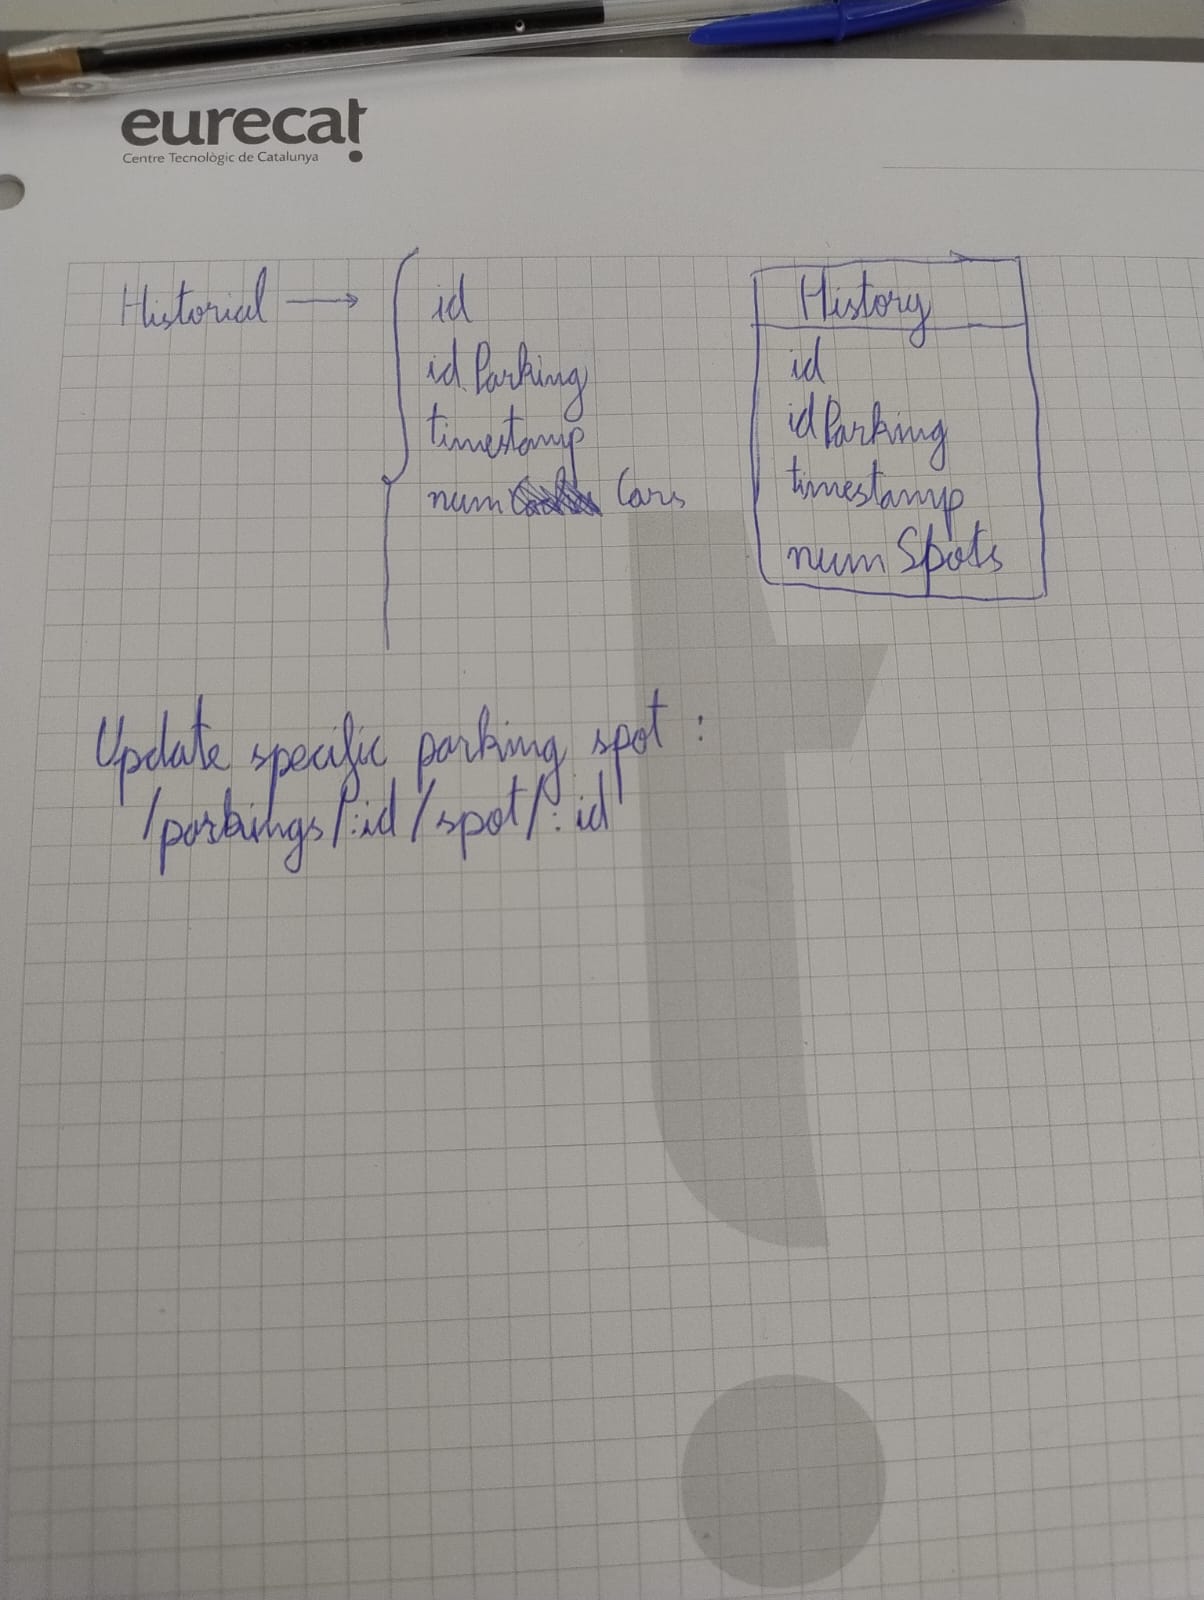 eurecat
Centre Tecnològic de Catalunya
Historial →
id
id Parking
timestamp
num Cars
History
id
idParking
timestamp
num Spots
Update specific parking spot :
/parkings/:id/spot/:id